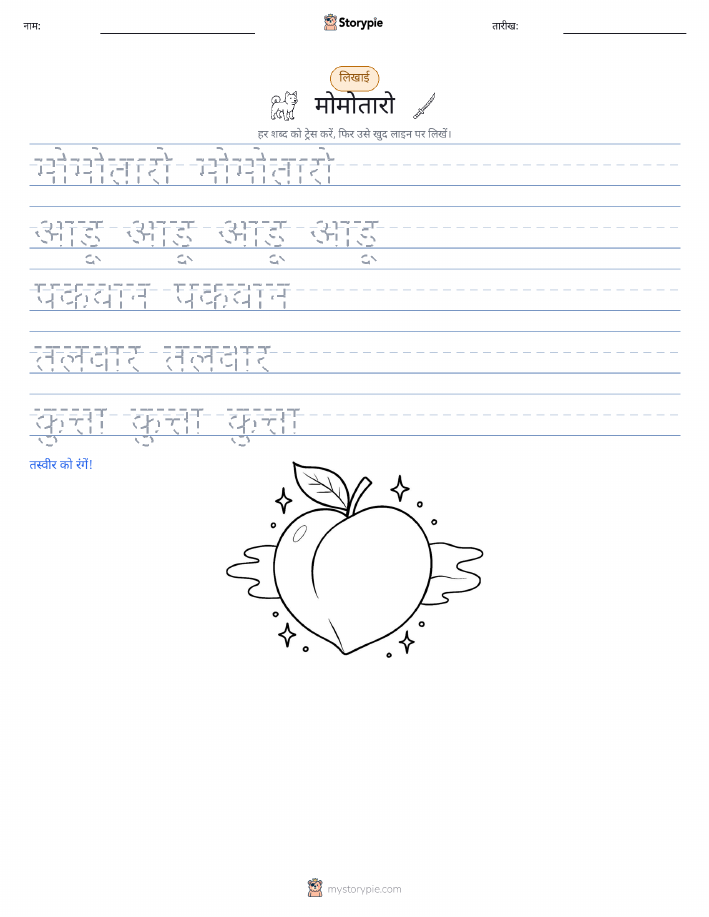 नाम:
Storypie
तारीख:
लिखाई
मोमोतारो
हर शब्द को ट्रेस करें, फिर उसे खुद लाइन पर लिखें।
मोमोतारो मोमोतारो
आड़ू आड़ू आड़ू आड़ू
पकवान पकवान
तलवार तलवार
कुत्ता कुत्ता कुत्ता
तस्वीर को रंगें!
mystorypie.com